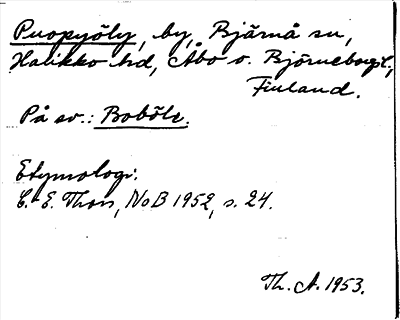 Puopyöly, by, Bjärnå sn,
Halikko hd, Åbo o. Björneborgs l.,
Finland.
På sv.: Boböle.
Etymologi:
C. E. Thors, NoB 1952, s. 24.
Th. A. 1953.